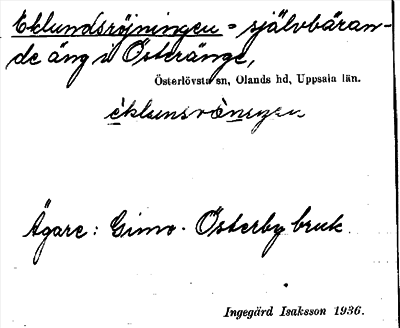 Eklundsröjningen = självbäran-
de äng u Österänge,
Österlövsta sn, Olands hd, Uppsala län.
Ägare: Gimo-Österby bruk
Ingegärd Isaksson 1936.